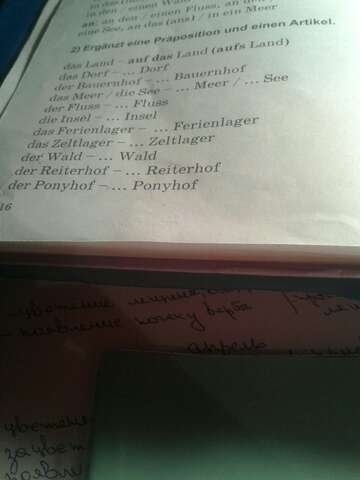 in den / einen Wald
an: an den / einen Fluss, an den
eine See, an das (ans) / in ein Meer
2) Ergänzt eine Präposition und einen Artikel.
das Land – auf das Land (aufs Land)
das Dorf – ... Dorf
der Bauernhof – ... Bauernhof
das Meer / die See – ... Meer / ... See
der Fluss – ... Fluss
die Insel – ... Insel
das Ferienlager – ... Ferienlager
das Zeltlager – ... Zeltlager
der Wald – ... Wald
der Reiterhof – ... Reiterhof
der Ponyhof – ... Ponyhof
16
цветение
– появление почек у верба
апрель
цветени
зацвет
появл